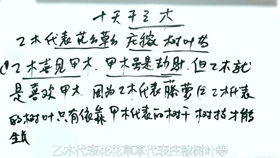 十天干之木
乙木代表花花草草 庄稼 树叶等
乙木喜见甲木 甲木虽是劫财,但乙木就
是喜欢甲木 因为乙木代表藤萝 乙木代表
的树叶只有依靠甲木代表的树干 树枝才能
生
乙木代表花花草草代表庄稼树叶等